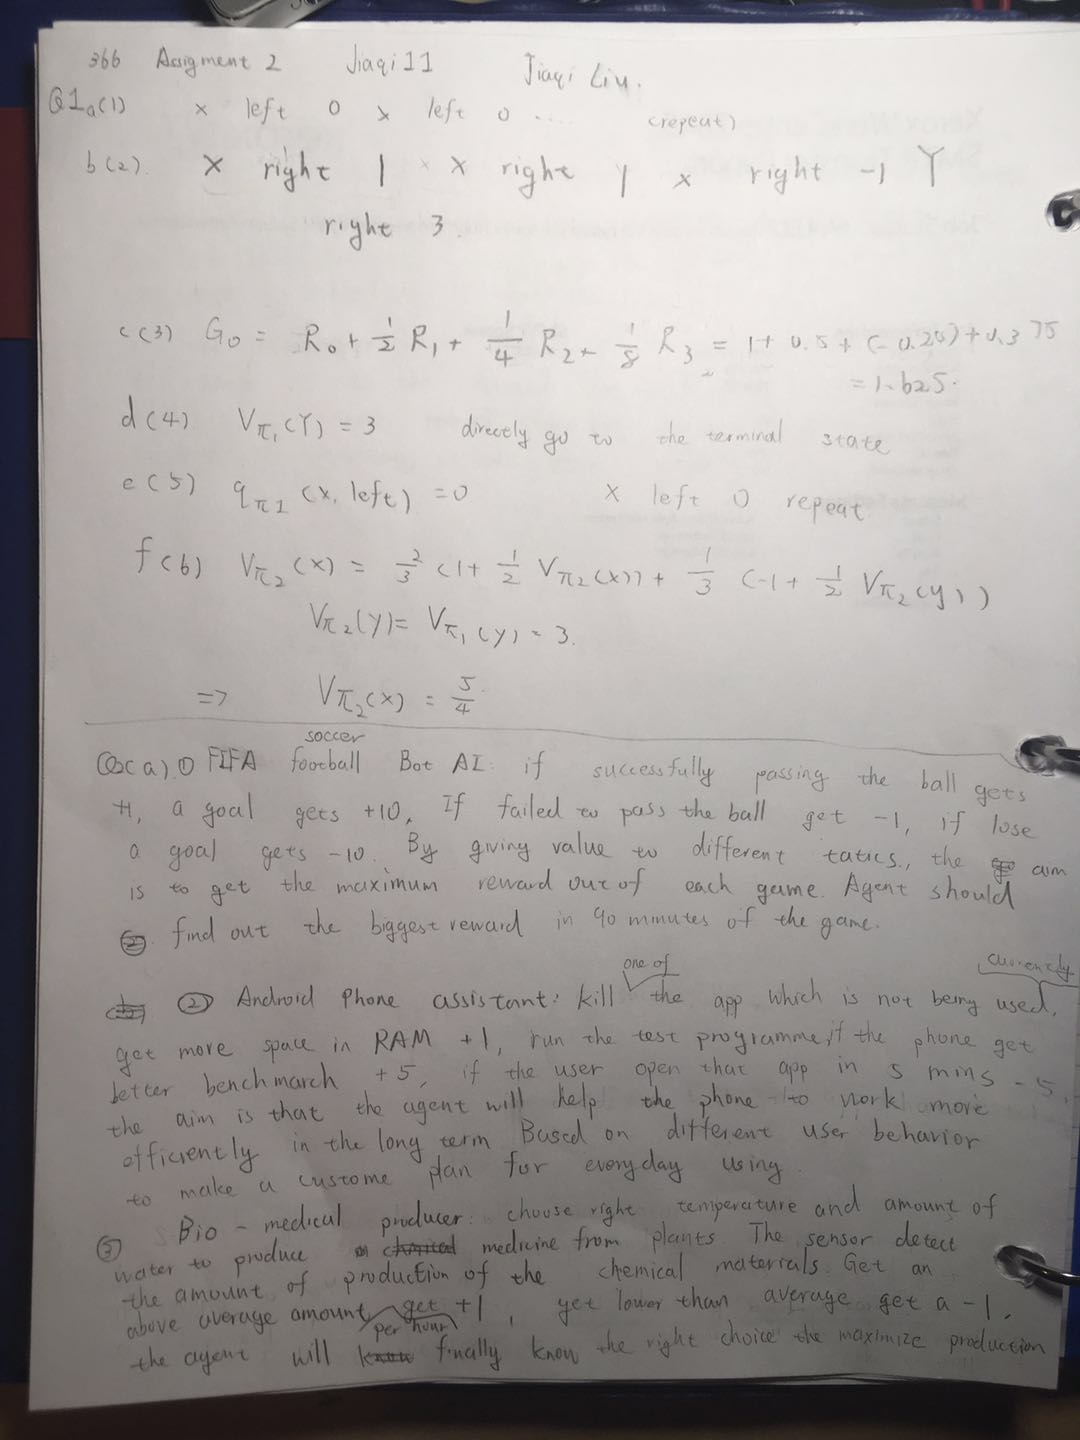 366 Assigment 2 Jiaqi11 Jiaqi Liu.
Q1a(1) x left 0 x left 0 .... (repeat)
b(2). X right 1 x right 1 x right -1 Y
right 3.
c(3) G₀ = R₀ + 1/2 R₁ + 1/4 R₂ + 1/8 R₃ = 1 + 0.5 + (-0.25) + 0.375
= 1.625.
d(4) Vπ₁(Y) = 3 directly go to the terminal state
e(5) qπ1 (x, left) = 0 X left 0 repeat
f(6) Vπ₂(x) = 2/3 (1 + 1/2 Vπ₂(x)) + 1/3 (-1 + 1/2 Vπ₂(y))
Vπ₂(y) = Vπ₁(y) = 3.
=> Vπ₂(x) = 5/4
soccer
Q2(a) ① FIFA football Bot AI: if successfully passing the ball gets
+1, a goal gets +10, If failed to pass the ball get -1, if lose
a goal gets -10. By giving value to different tatics., the aim
is to get the maximum reward out of each game. Agent should
find out the biggest reward in 90 minutes of the game.
one of currently
② Android Phone assistant: kill the app which is not being used,
get more space in RAM +1, run the test programme, if the phone get
better benchmarch +5, if the user open that app in 5 mins -5
the aim is that the agent will help the phone to work more
efficiently in the long term Based on different user behavior
to make a custome plan for everyday using.
③ Bio-medical producer: choose right temperature and amount of
water to produce medicine from plants. The sensor detect
the amount of production of the chemical materials. Get an
above average amount get +1, yet lower than average get a -1.
per hour
the agent will finally know the right choice the maximize production